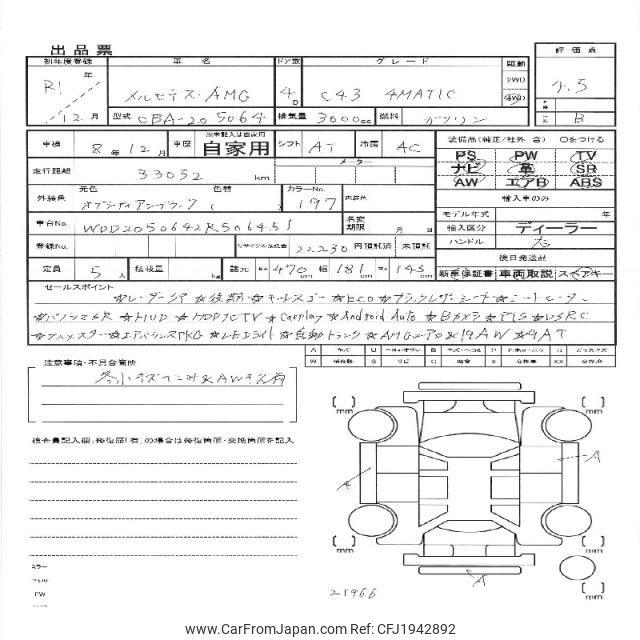 出品票
初年度登録 車名 ドア数 グレード 駆動 評価点
R1 年 メルセデス・AMG 4D C43 4MATIC 2WD 4WD 4.5
12月 型式 CBA-205064 排気量 3000cc 燃料 ガソリン B
車検 8年12月 車歴 ※未記入は自家用 自家用 シフト AT 冷房 AC
装備品(純正/社外 含) ○をつける
走行距離 33052 km メーター
PS PW TV
ナビ 革 SR
AW エアB ABS
外装色 元色 オブシディアンブラック 色替 ( ) カラーNo. 197 内装色
輸入車のみ
モデル年式 年
車台No. WDD2050642R506451 名変期限 月 日
輸入区分 ディーラー
ハンドル 右
登録No. リサイクル預託金 22230 円 預託済 未預託
後日発送品
定員 5人 積載量 kg 諸元 長さ 470cm 幅 181cm 高さ 143cm
新車保証書 車両取説 スペアキー
セールスポイント
☆レーダーSP ☆後期 ☆キーレスゴー ☆ECO ☆ブラックレザーシート ☆シートヒーター
☆パノラマSR ☆HUD ☆HDDナビTV ☆Carplay ☆Android Auto ☆Bカメラ ☆PTS ☆DSRC
☆LEDライト ☆自動トランク ☆19AW ☆9AT
注意事項・不具合箇所
各小キズヘコミ&AWキズ有
検査員記入欄:修復歴「有」の場合は修復箇所・交換箇所を記入
[ ] mm [ ] mm
A A
[ ] mm [ ] mm
A
[ ] mm
21966
www.CarFromJapan.com Ref: CFJ1942892